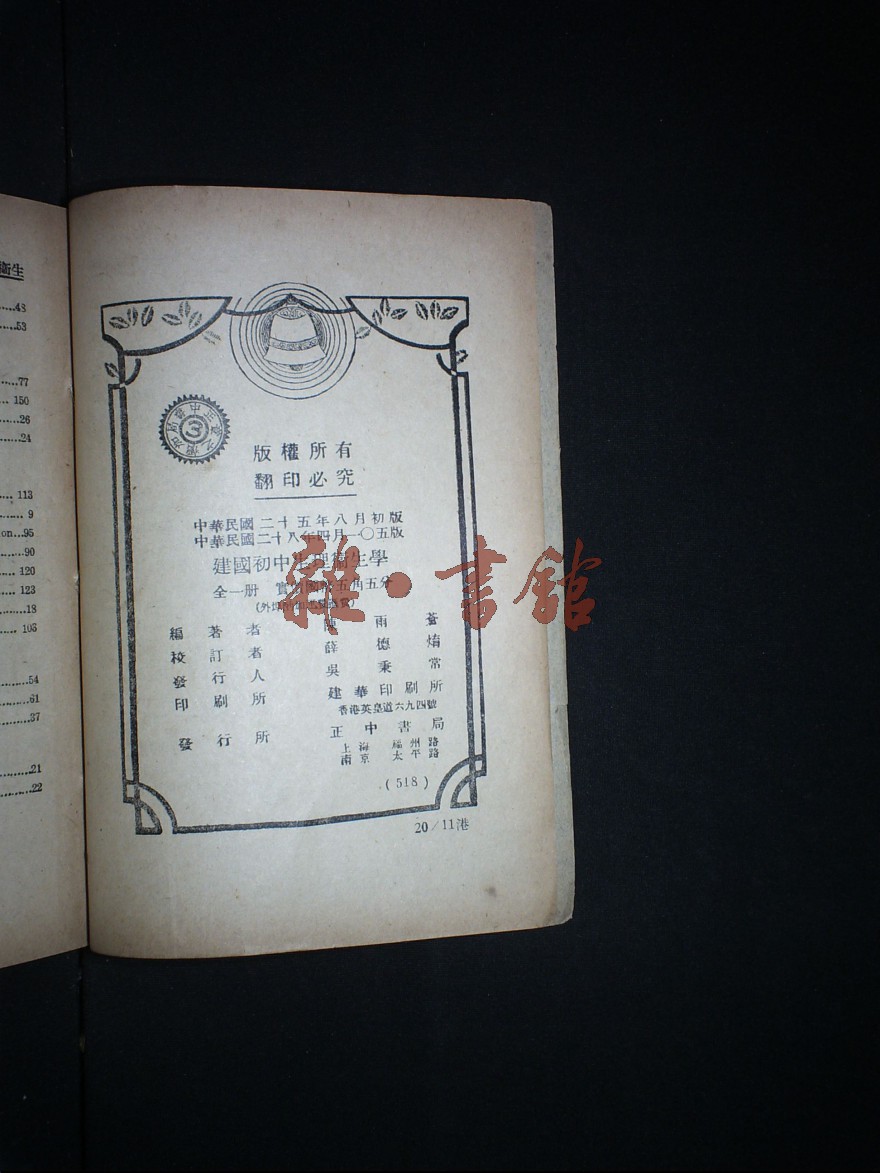 衛生
48
53
77
150
26
24
113
9
95
90
120
123
18
103
54
61
37
21
22
3
版權所有
翻印必究
中華民國二十五年八月初版
中華民國二十八年四月一〇五版
建國初中生理衛生學
全一册 實價國幣五角五分
編著者 陳雨蒼
校訂者 薛德焴
發行人 吳秉常
印刷所 建華印刷所
香港英皇道六九四號
發行所 正中書局
上海福州路
南京太平路
(518)
20/11港
雜·書舘